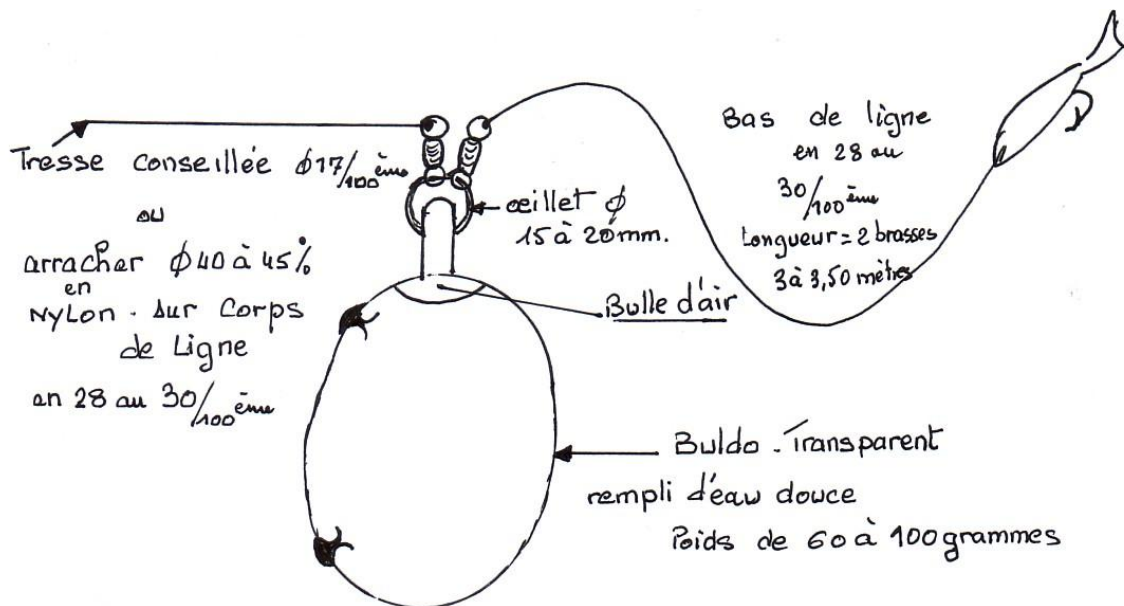 Tresse conseillée ϕ 17/100ème
ou
arracher ϕ 40 à 45%
en
Nylon - sur corps
de Ligne
en 28 au 30/100ème
œillet ϕ
15 à 20mm.
Bulle d'air
Bas de ligne
en 28 au
30/100ème
Longueur = 2 brasses
3 à 3,50 mètres
Buldo - Transparent
rempli d'eau douce
Poids de 60 à 100 grammes